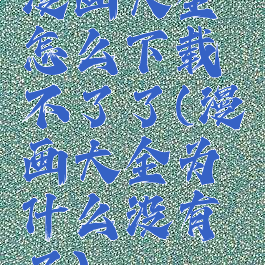 漫画大全
怎么下载
不了了(漫
画大全为
什么没有
了)